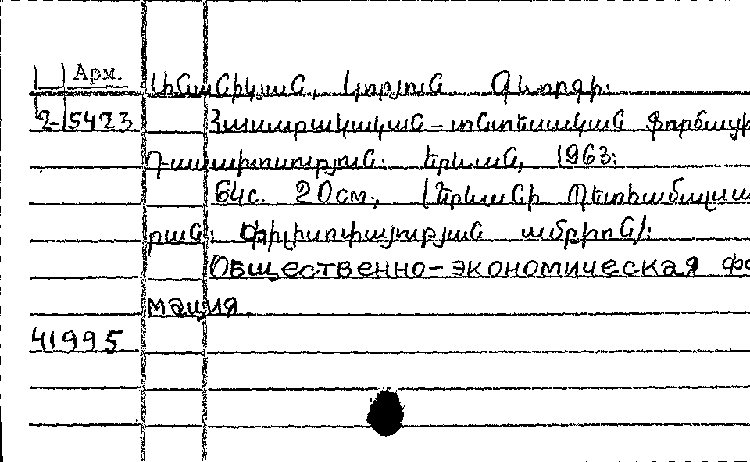 Арм.
Լինանիկյան, Կորյուն Գևորգի.
2-5423 Հասարակական-տնտեսական ֆորմաց
Դասախոսություն. Երևան, 1963:
64с. 20см, (Երևանի Պետիամալսա
րան: Փիլիսոփայության ամբիոն):
Общественно-экономическая фо
мация.
41995